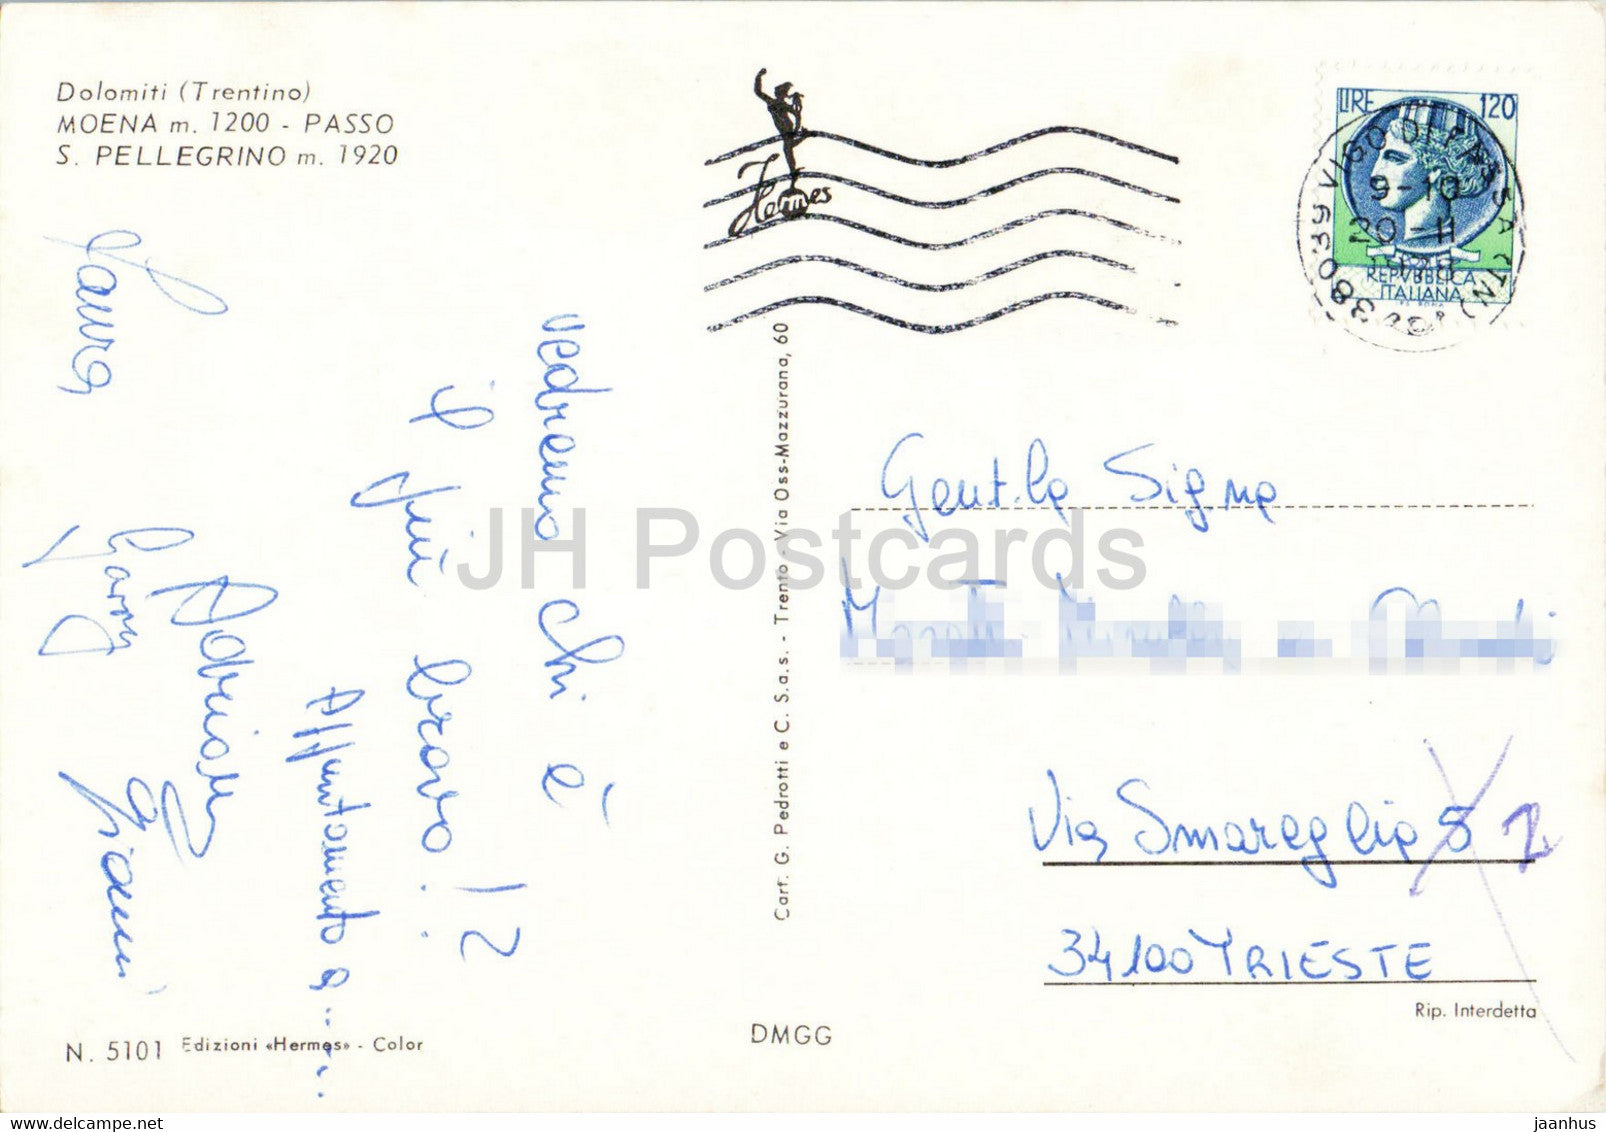 Dolomiti (Trentino)
MOENA m. 1200 - PASSO
S. PELLEGRINO m. 1920
Hermes
LIRE 120
REPUBBLICA
ITALIANA
38039 VIGO DI FASSA (TN)
9-10
20-11
1978
vedremo chi è
il più bravo!?
Appuntamento a......
Laura
Adriana
Gianni
Cart. G. Pedrotti e C. S.a.s. - Trento - Via Oss-Mazzurana, 60
Gent.la Sig.na
Via Smareglia 5 2
34100 TRIESTE
Rip. Interdetta
N. 5101 Edizioni «Hermes» - Color
DMGG
JH Postcards
DELCAMPE.NET
jaanhus